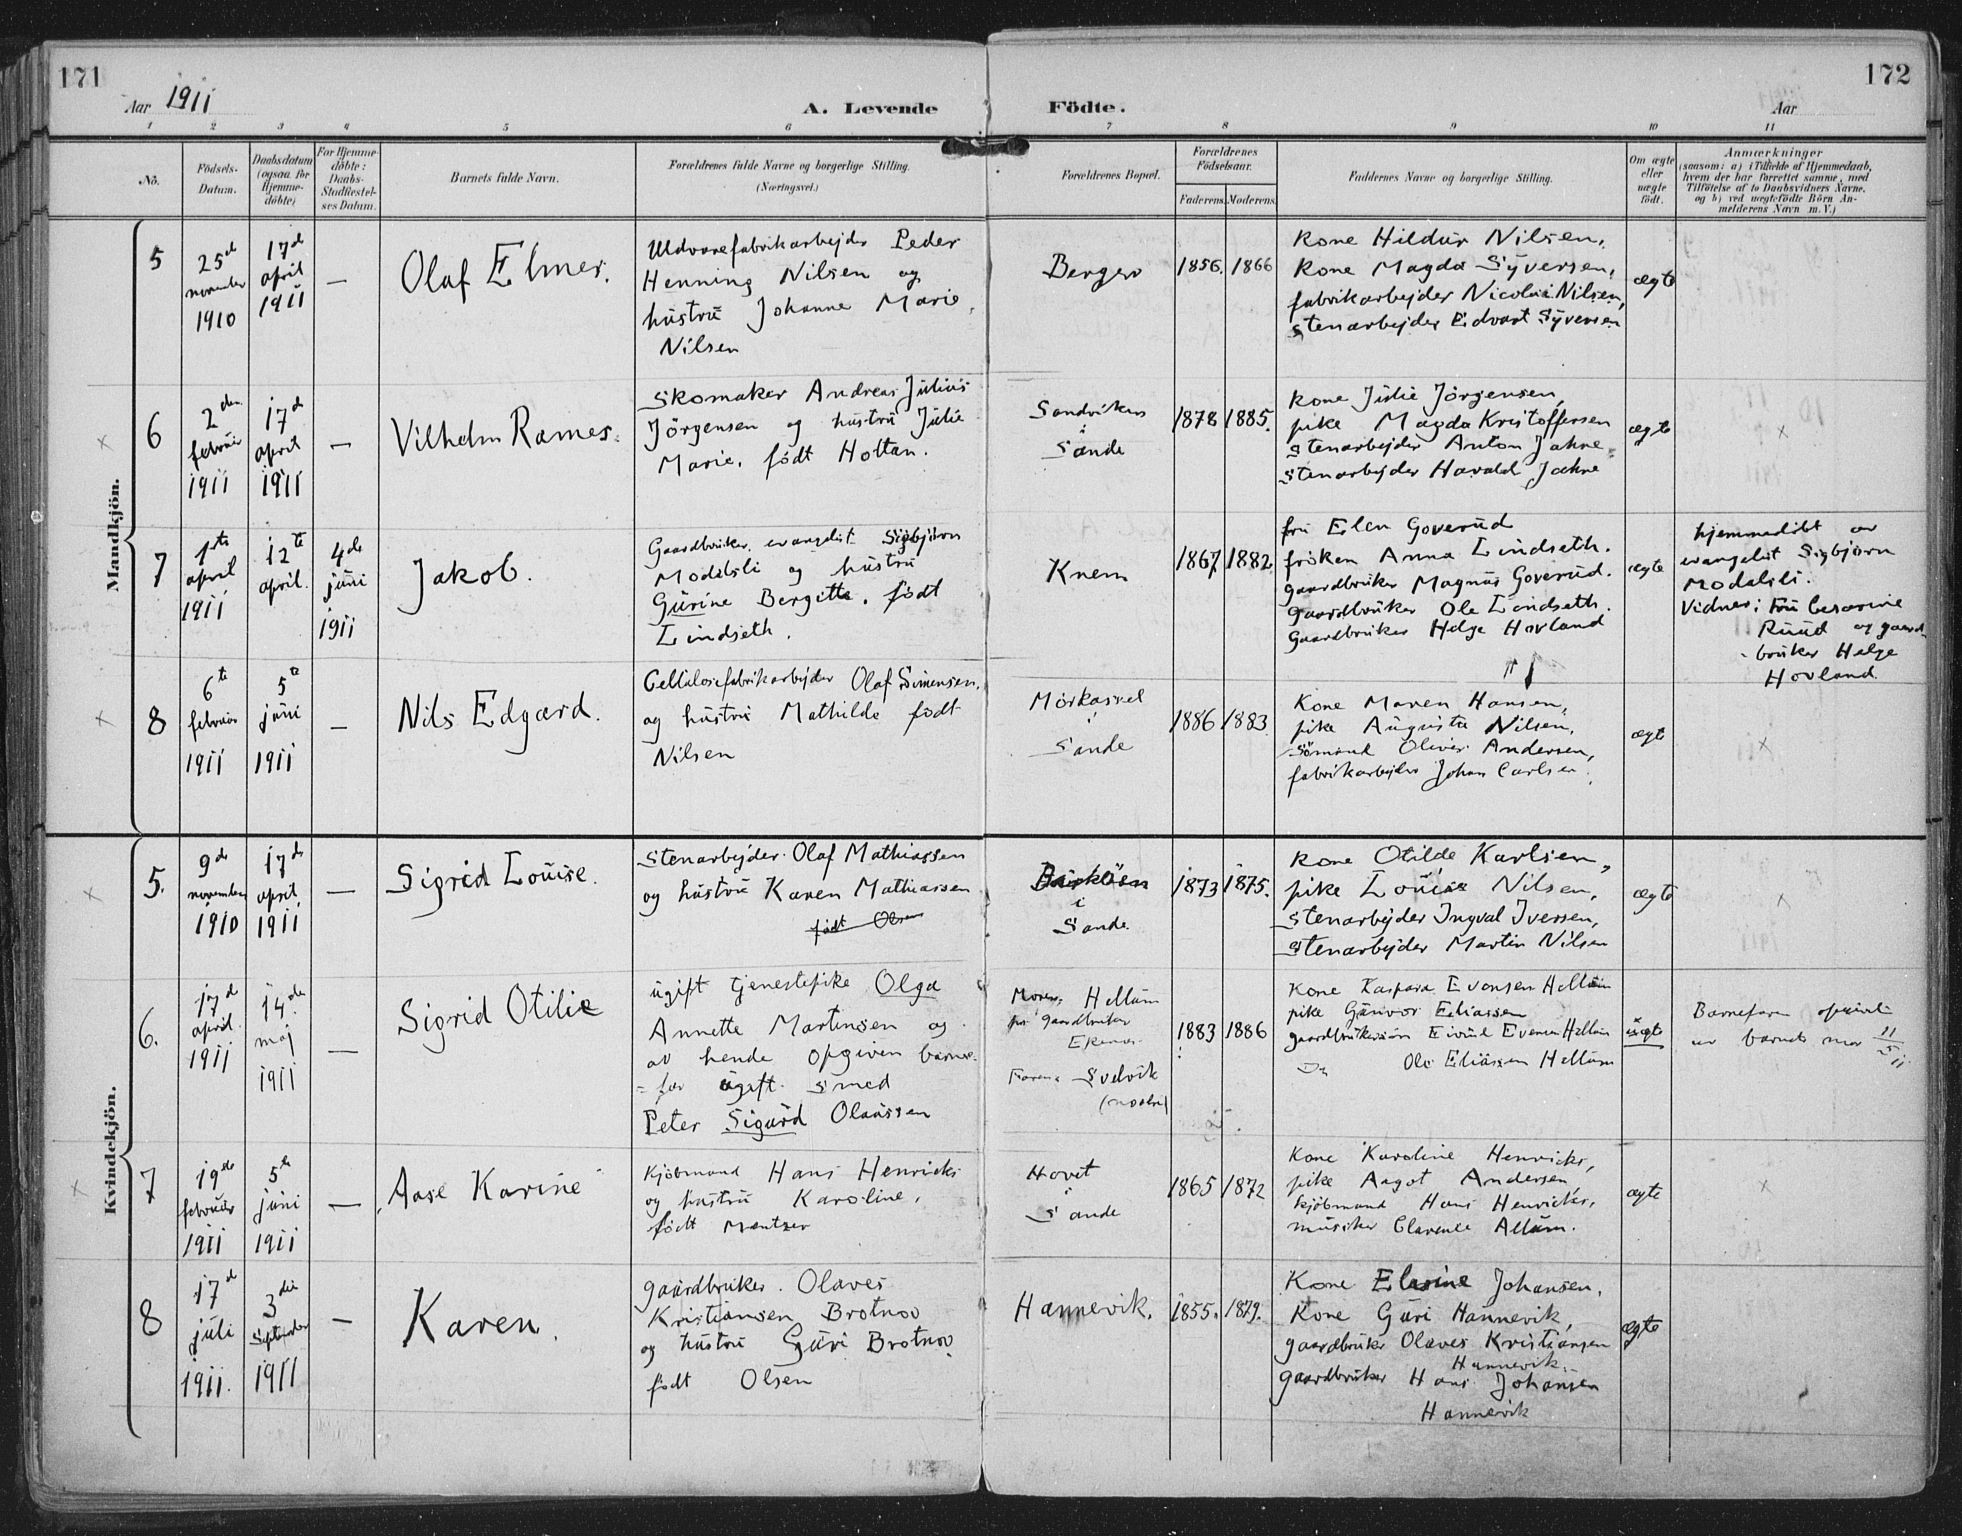 171
Aar 1911
A. Levende
1 2 3 4 5 6
No.
Födsels-
Datum.
Daabsdatum
(ogsaa for
Hjemme-
döbte)
For Hjemme-
döbte:
Daabs-
Stadfæstel-
ses Datum.
Barnets fulde Navn.
Forældrenes fulde Navne og borgerlige Stilling.
(Næringsvei.)
Mandkjön.
5
25d
november
1910
17d
april
1911
—
Olaf Elmer.
Uldvarefabrikarbejder Peder
Henning Nilsen og
hustru Johanne Marie
Nilsen
6
2den
februar
1911
17d
april
1911
—
Vilhelm Rames.
Skomaker Andreas Julius
Jörgensen og hustru Julie
Marie, födt Holtan.
7
1ste
april
1911
12te
april.
4de
juni
1911
Jakob.
Gaardbruker, evangelist Sigbjörn
Modalsli og hustru
Gurine Bergitte, födt
Lindseth.
8
6te
februar
1911
5te
juni
1911
—
Nils Edgard.
Cellulosefabrikarbejder Olaf Simensen,
og hustru Mathilde födt
Nilsen
Kvindekjön.
5.
9de
november
1910
17de
april
1911
—
Sigrid Louise.
Stenarbejder Olaf Mathiassen
og hustru Karen Mathiassen
födt Olsen
6.
17d
april
1911
14de
maj
1911
—
Sigrid Otilie
ugift tjenestepike Olga
Annette Martinsen og
av hende opgiven barne-
far ugift smed
Peter Sigurd Olaussen
7
19de
februar
1911
5te
juni
1911
—
Aase Karine
Kjöbmand Hans Henricks
og hustru Karoline,
födt Mentzer
8
17d
juli
1911.
3die
September
1911
—
Karen.
gaardbruker Olaves
Kristiansen Brotnov
og hustru Guri Brotnov
födt Olsen
172
Födte.
Aar
7 8 9 10 11
Forældrenes Bopæl.
Forældrenes
Födselsaar.
Faderens. Moderens.
Faddernes Navne og borgerlige Stilling.
Om ægte
eller
uægte
födt.
Anmærkninger
(saasom: a) i Tilfælde af Hjemmedaab,
hvem der har forrettet samme, med
Tilföielse af to Daabsvidners Navne,
og b) ved uægtefödte Börn An-
melderens Navn m. V.)
Berger
1856. 1866
Kone Hildur Nilsen,
kone Magda Syversen,
fabrikarbejder Nicolai Nilsen,
stenarbejder Edvart Syversen
ægte
Sandviken
i
Sande
1878 1885.
kone Julie Jörgensen,
pike Magda Kristoffersen
stenarbejder Anton Jahre
Stenarbejder Harald Jahre
ægte
Knem
1867, 1882.
fru Elen Goverud
fröken Anna Lindseth.
gaardbruker Magnus Goverud.
gaardbruker Ole Lindseth.
Gaardbruker Helge Hovland
ægte
hjemmedöbt av
evangelist Sigbjörn
Modalsli.
Vidner: Fru Cesarine
Ruud og gaard-
bruker Helge
Hovland.
Mörkassel
i
Sande
1886 1883.
Kone Maren Hansen,
pike Augusta Nilsen,
Sömand Oliver Andersen,
fabrikarbejder Johan Carlsen.
ægte
i
Sande.
1873 1875.
kone Otilde Karlsen,
pike Louise Nilsen,
Stenarbejder Ingval Iversen,
Stenarbejder Martin Nilsen
ægte
Moren: Hellum
gaardbruker
Faren: Svelvik
1883 1886
Kone Kaspara Evensen Hellum
pike Gunvor Eliassen
gaardbrukersön Eivind Evensen Hellum
Do Ole Eliassen Hellum
uægte
Barnefaren opgivet
av barnets mor 11/5 11
Hovet
i
Sande
1865 1872
Kone Karoline Henricks,
pike Aagot Andersen,
kjöbmand Hans Henricks,
musiker Clarence Allum.
ægte
Hannevik.
1855. 1879.
Kone Elesine Johansen,
Kone Guri Hannevik,
gaardbruker Olaves Kristiansen
Hannevik.
gaardbruker Hans Johansen
Hannevik
ægte